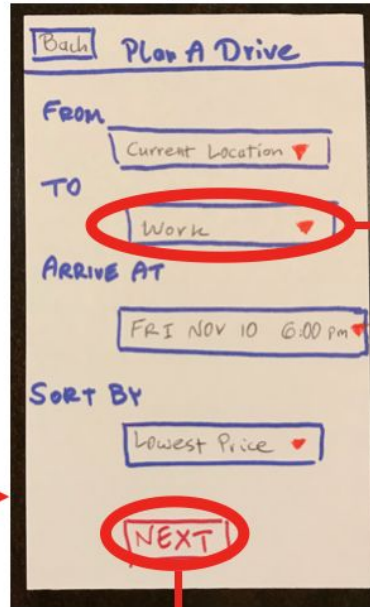 Back Plan A Drive
FROM
Current Location
TO
Work
ARRIVE AT
FRI NOV 10 6:00 pm
SORT BY
Lowest Price
NEXT